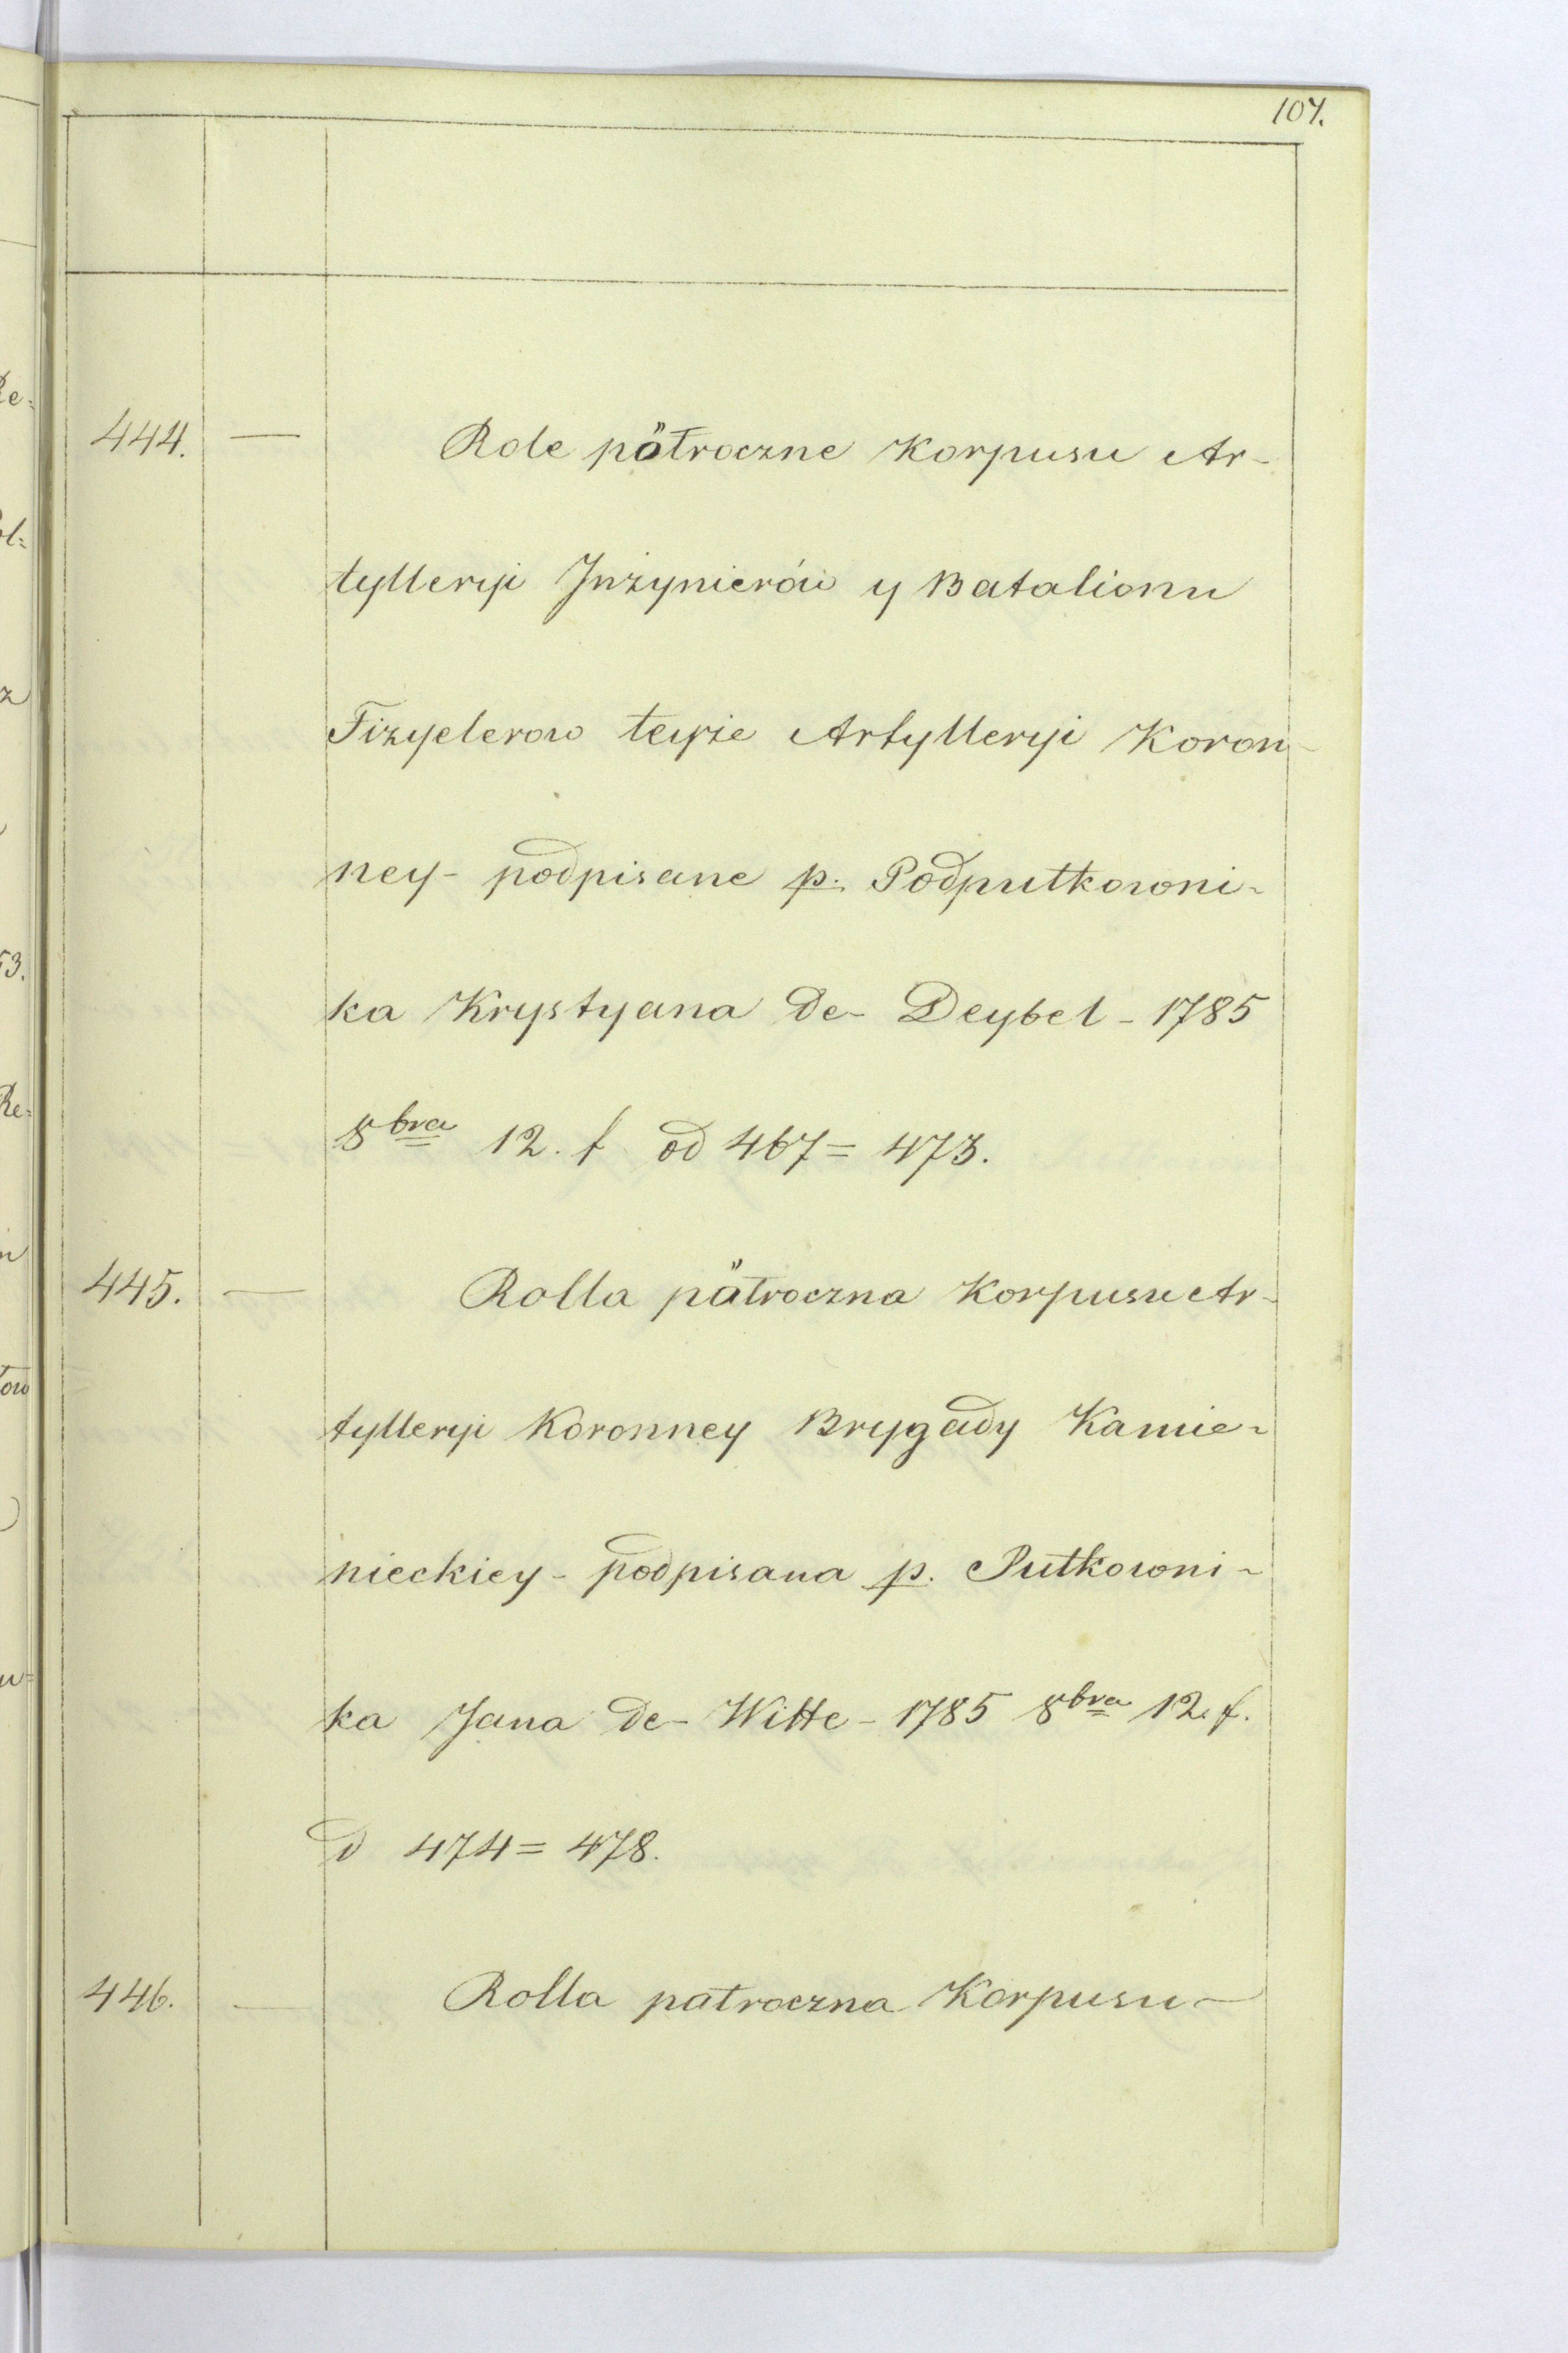 107.
444. — Role półroczne Korpusu Ar-
tylleryi Jnżynierów y Batalionu
Fizyelerow teyże Artylleryi Koron-
ney - podpisane p. Podpułkowni-
ka Krystyana de - Deybel - 1785
8bra 12. f od 467 = 473.
445. — Rolla pätroczna Korpusu Ar-
tylleryi Koronney Brygady Kamie-
nieckiey - podpisana p. Pułkowni-
ka Jana de - Witte - 1785 8bra 12. f.
d 474 = 478.
446. — Rolla patroczna Korpusu -